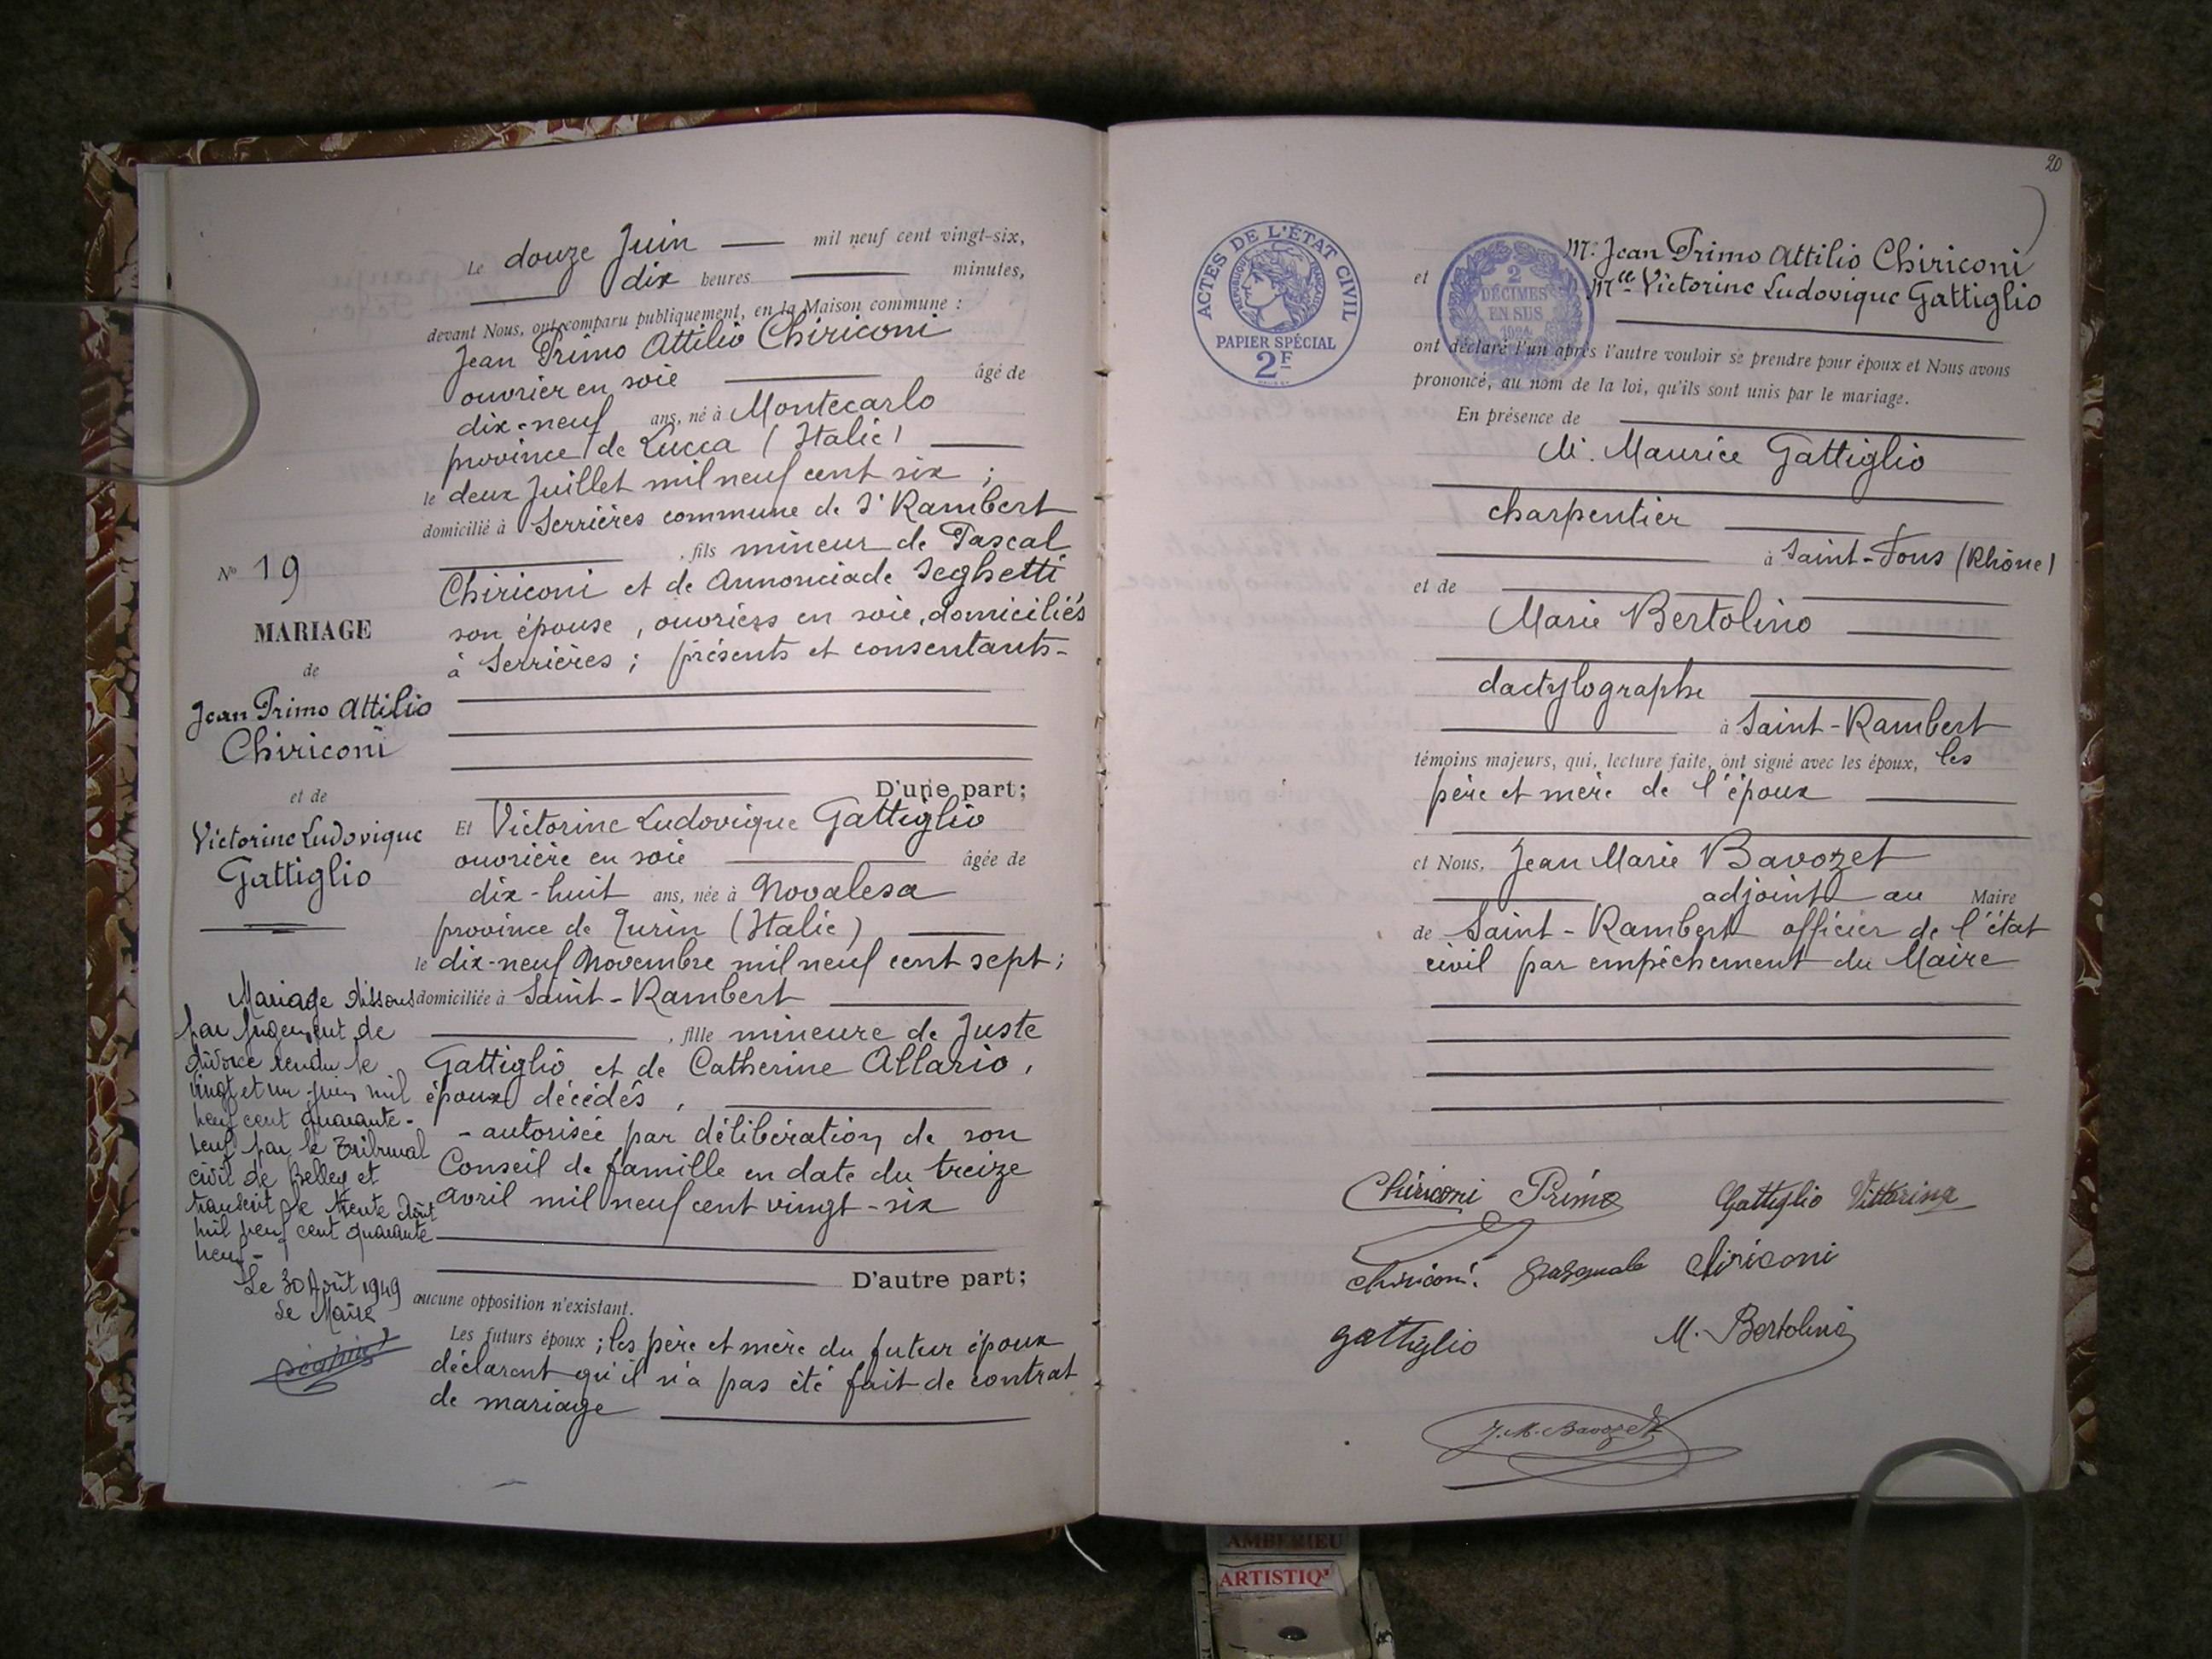 Le douze Juin mil neuf cent vingt-six,
dix heures minutes,
devant Nous, ont comparu publiquement, en la Maison commune :
Jean Primo Attilio Chiriconi
ouvrier en soie âgé de
dix-neuf ans, né à Montecarlo
province de Lucca (Italie)
le deux Juillet mil neuf cent six ;
domicilié à Serrières commune de St Rambert
, fils mineur de Pascal
Chiriconi et de Annonciade Seghetti
son épouse, ouvriers en soie, domiciliés
à Serrières ; présents et consentants -
D'une part;
Et Victorine Ludovique Gattiglio
ouvrière en soie âgée de
dix-huit ans, née à Novalesa
province de Turin (Italie)
le dix-neuf Novembre mil neuf cent sept ;
domiciliée à Saint-Rambert
, fille mineure de Juste
Gattiglio et de Catherine Allario,
époux décédés,
- autorisée par délibération de son
Conseil de famille en date du treize
avril mil neuf cent vingt-six
D'autre part;
aucune opposition n'existant.
Les futurs époux ; les père et mère du futur époux
déclarent qu'il n'a pas été fait de contrat
de mariage
No 19
MARIAGE
de
Jean Primo Attilio
Chiriconi
et de
Victorine Ludovique
Gattiglio
Mariage dissous
par jugement de
divorce rendu le
vingt et un juin mil
neuf cent quarante-
neuf par le Tribunal
civil de Belley et
transcrit le trente Août
mil neuf cent quarante
neuf -
Le 30 Août 1949
Le Maire
20
ACTES DE L'ÉTAT CIVIL
RÉPUBLIQUE FRANÇAISE
PAPIER SPÉCIAL
2F
2
DÉCIMES
EN SUS
1924
Mr. Jean Primo Attilio Chiriconi
et Mlle Victorine Ludovique Gattiglio
ont déclaré l'un après l'autre vouloir se prendre pour époux et Nous avons
prononcé, au nom de la loi, qu'ils sont unis par le mariage.
En présence de
M. Maurice Gattiglio
charpentier
à Saint-Fons (Rhône)
et de
Marie Bertolino
dactylographe
à Saint-Rambert
témoins majeurs, qui, lecture faite, ont signé avec les époux, les
père et mère de l'époux
et Nous, Jean Marie Bavozet
adjoint au Maire
de Saint-Rambert officier de l'état
civil par empêchement du Maire
Chiriconi Primo Gattiglio Vittorina
Chiriconi Pasquale Chiriconi
gattiglio M. Bertolino
J.M. Bavozet
AMBERIEU
ARTISTIQ